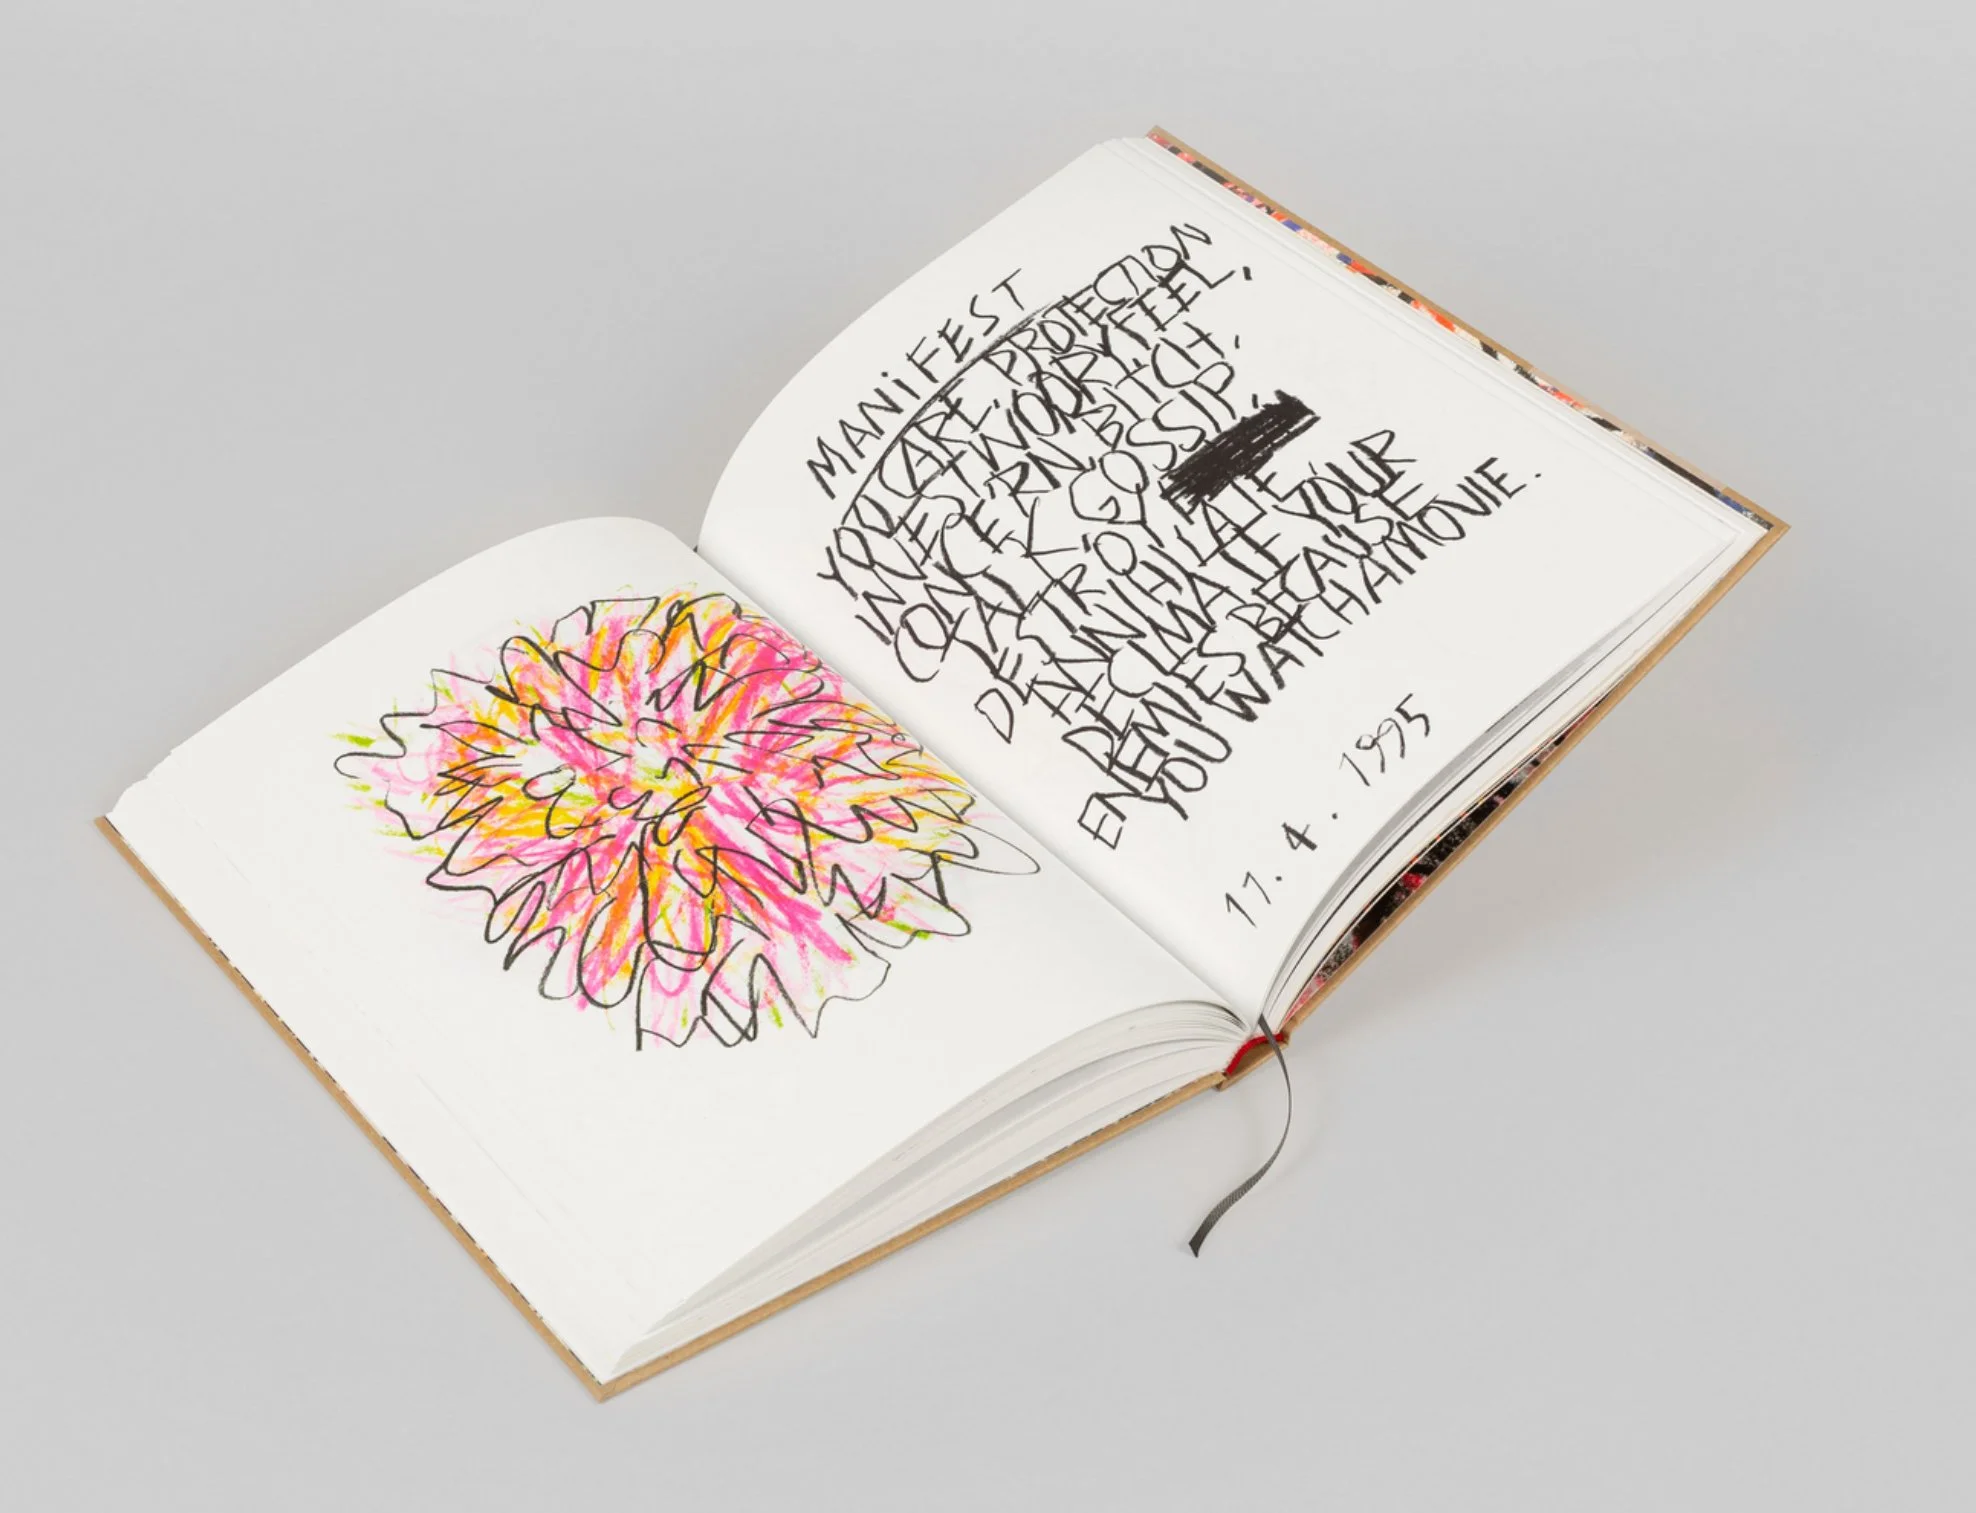 MANiFEST
YOU CARE. PROTECTION
INVEST. WORRY. FEEL.
CONCERN. BITCH.
TALK. GOSSIP.
DESTROY
ANNIHILATE.
IF YOUR
ENEMIES BECAUSE
YOU WATCH A MOVIE.
17. 4. 1995